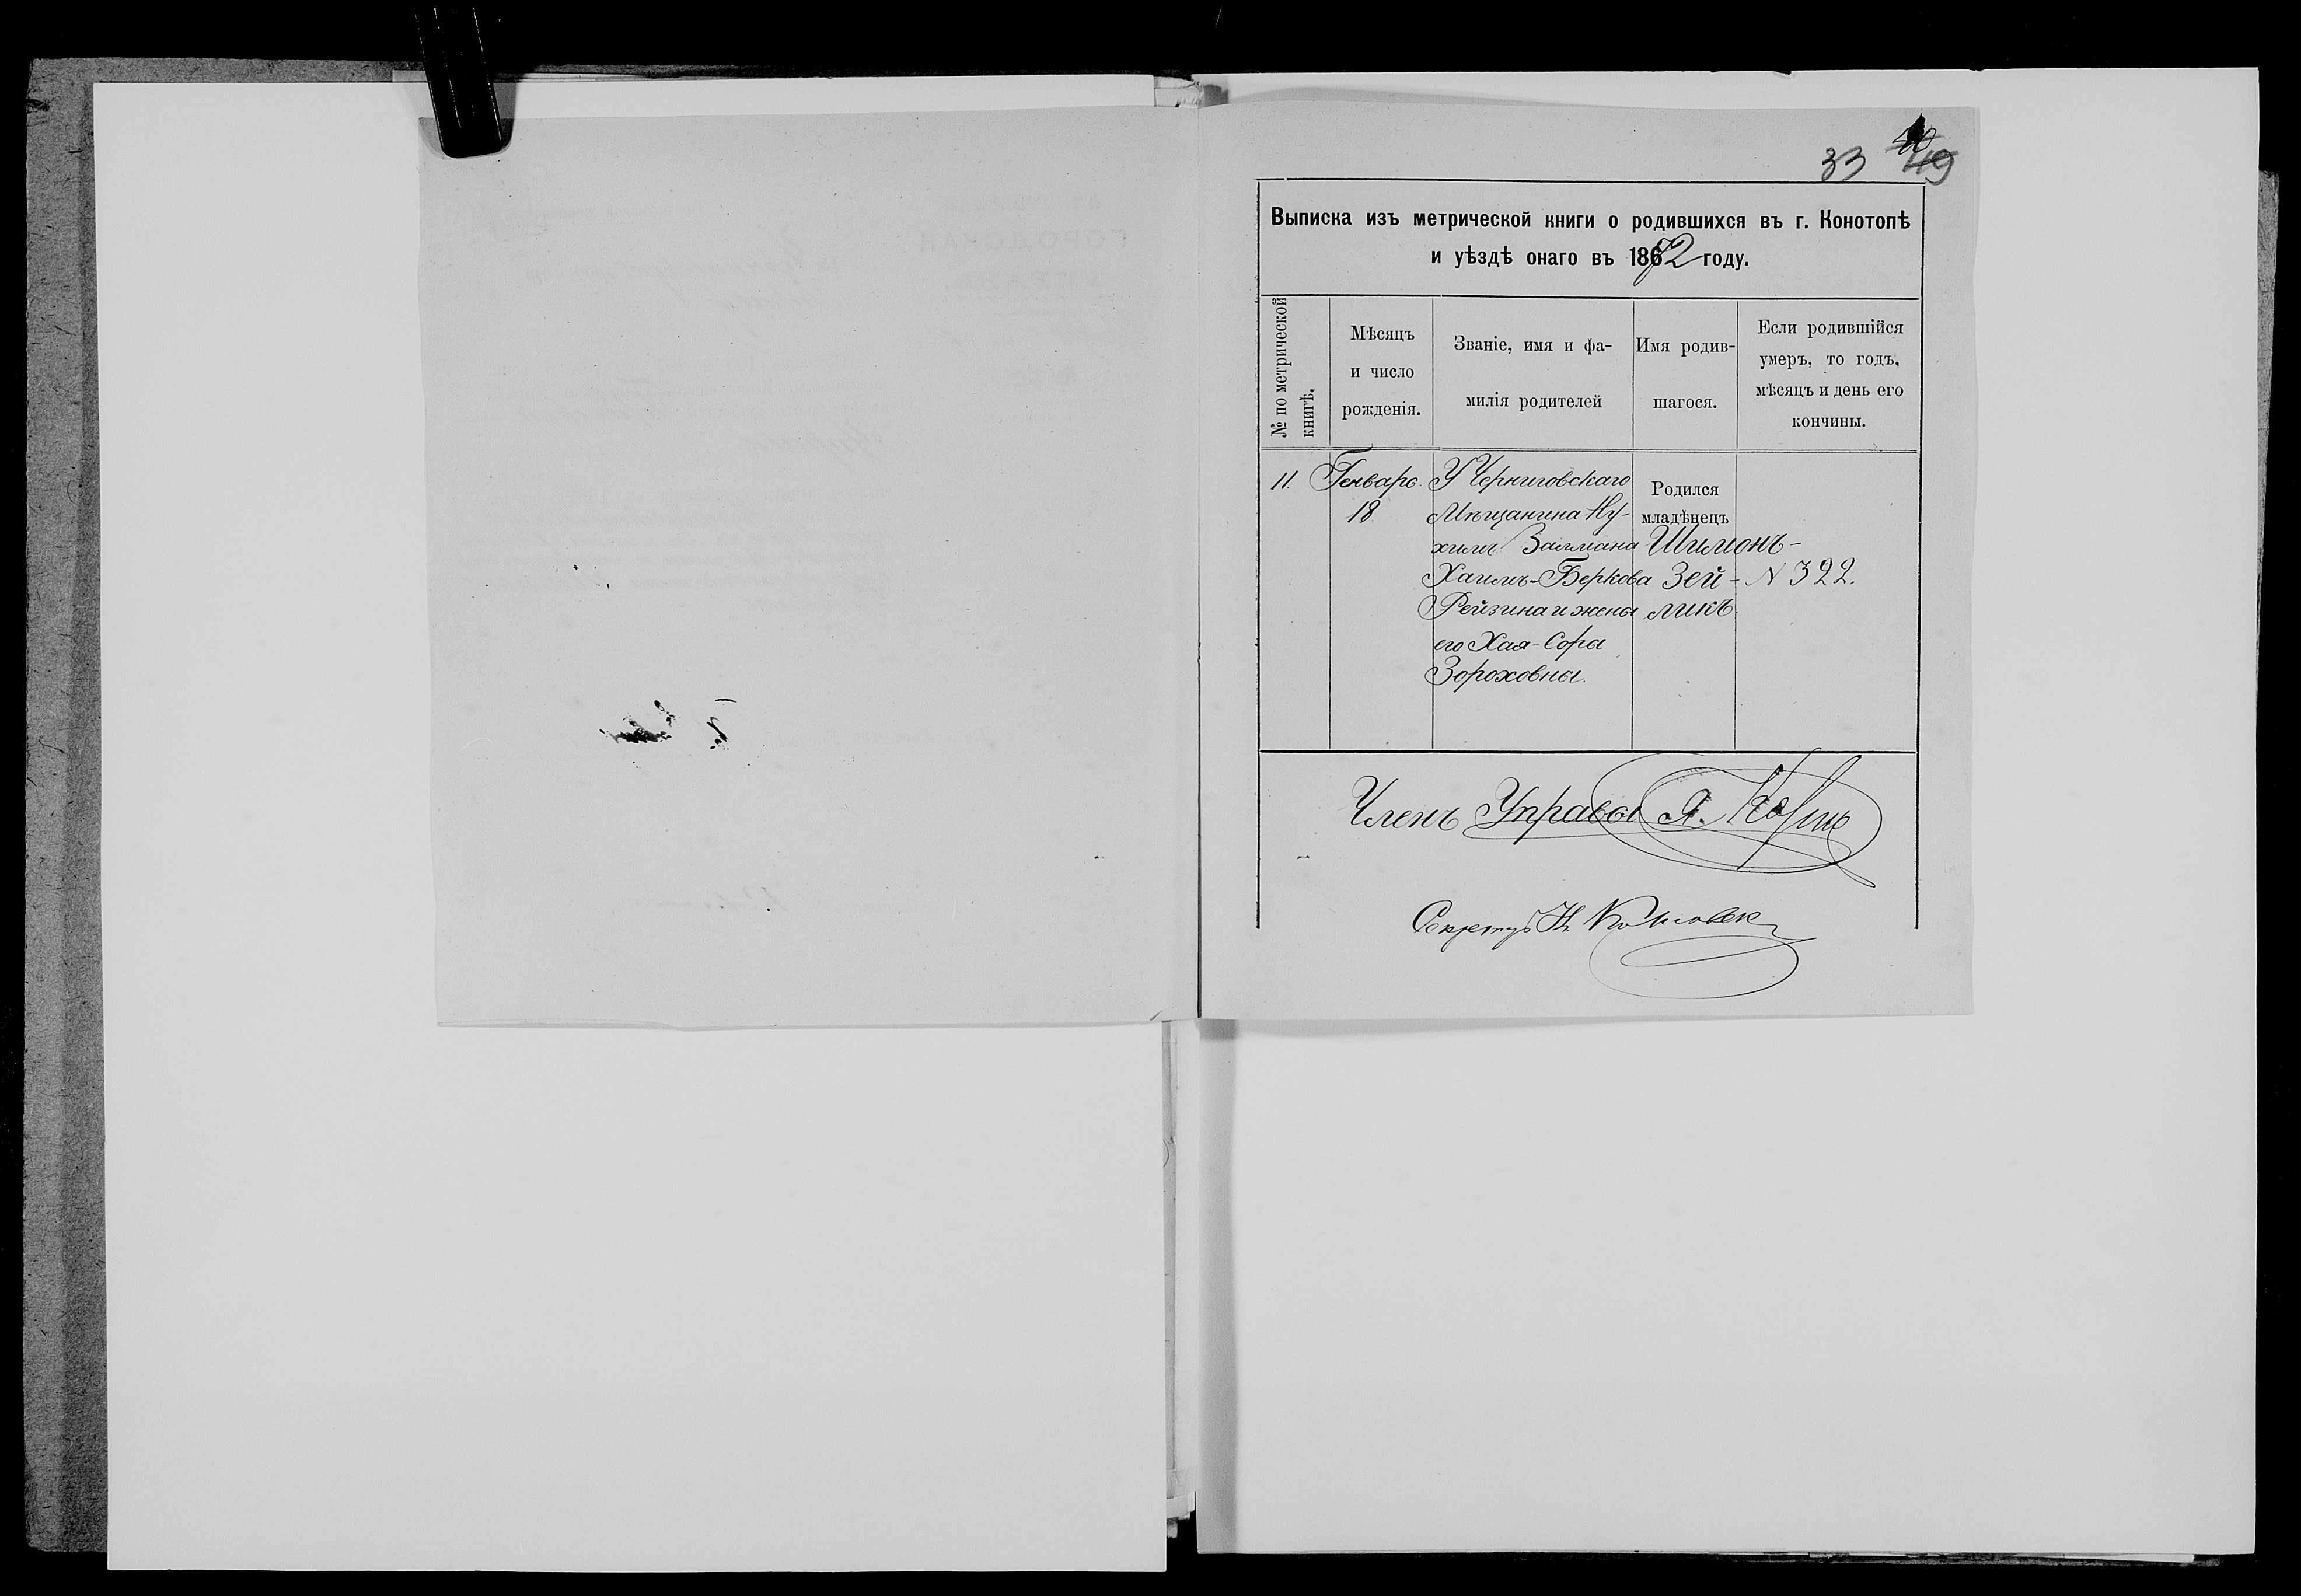 33 49
Выписка изъ метрической книги о родившихся въ г. Конотопѣ
и уѣздѣ онаго въ 1872 году.
№ по метрической
книгѣ.
Мѣсяцъ
и число
рожденія.
Званіе, имя и фа-
милія родителей
Имя родив-
шагося.
Если родившійся
умеръ, то годъ,
мѣсяцъ и день его
кончины.
11.
Генварь.
18
У Черниговскаго
Мѣщанина Ну-
химъ Залмана
Хаимъ-Беркова
Рейзина и жены
его Хая-Сора
Зороховны.
Родился
младѣнецъ
Шимонъ-
Зей-
ликъ.
N 322.
Членъ Управы Я.
Секретарь